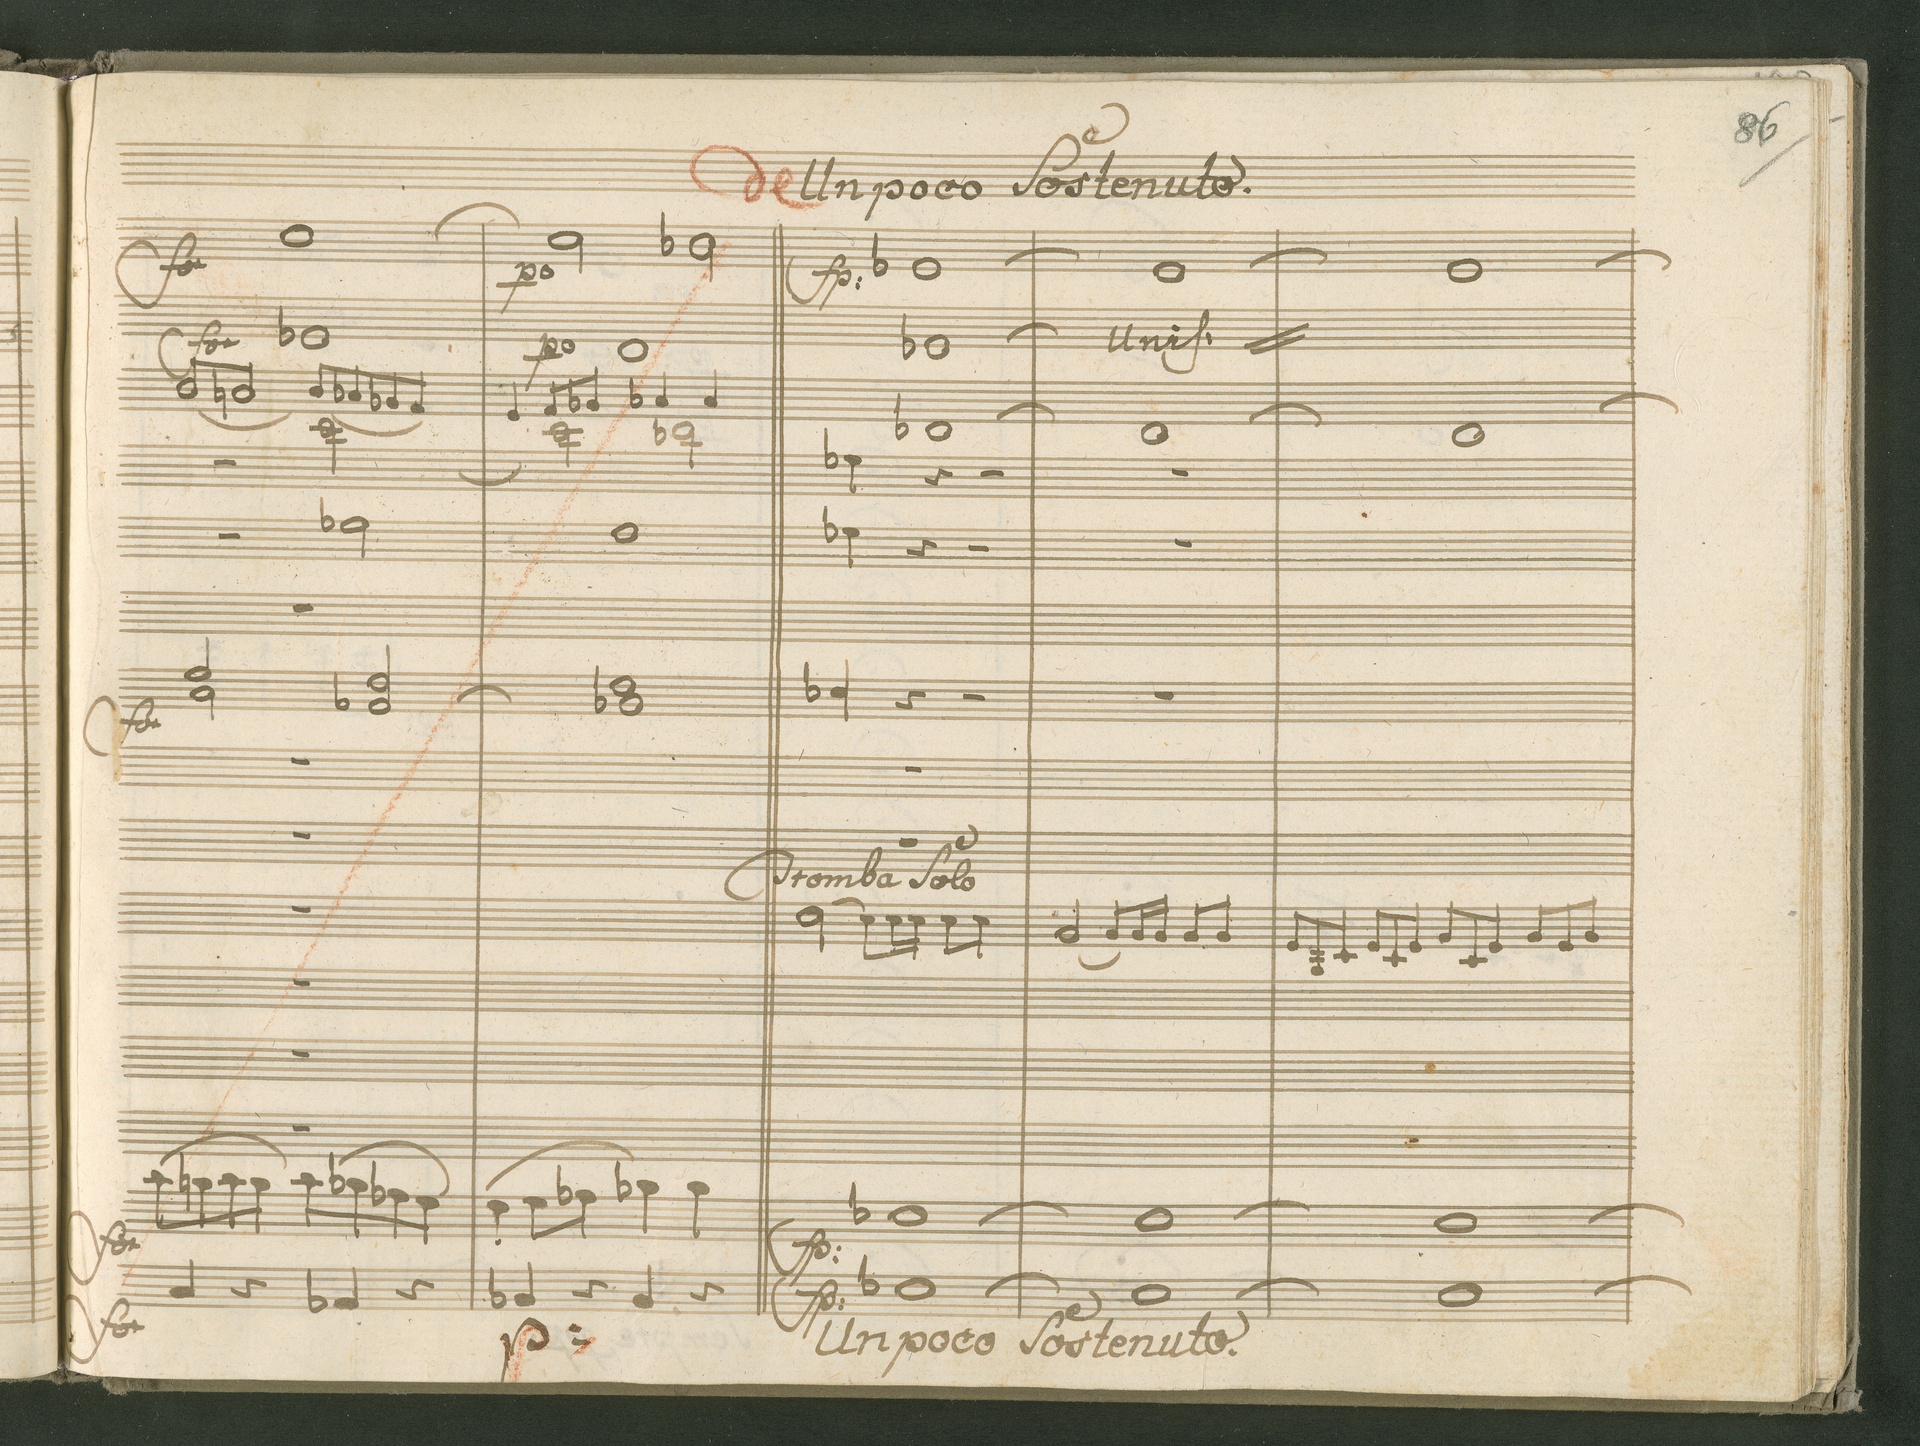 86
de Un poco Sostenuto.
for po fp:
for po Unis:
for
Tromba Solo
for fp:
for fp:
p: Un poco Sostenuto.